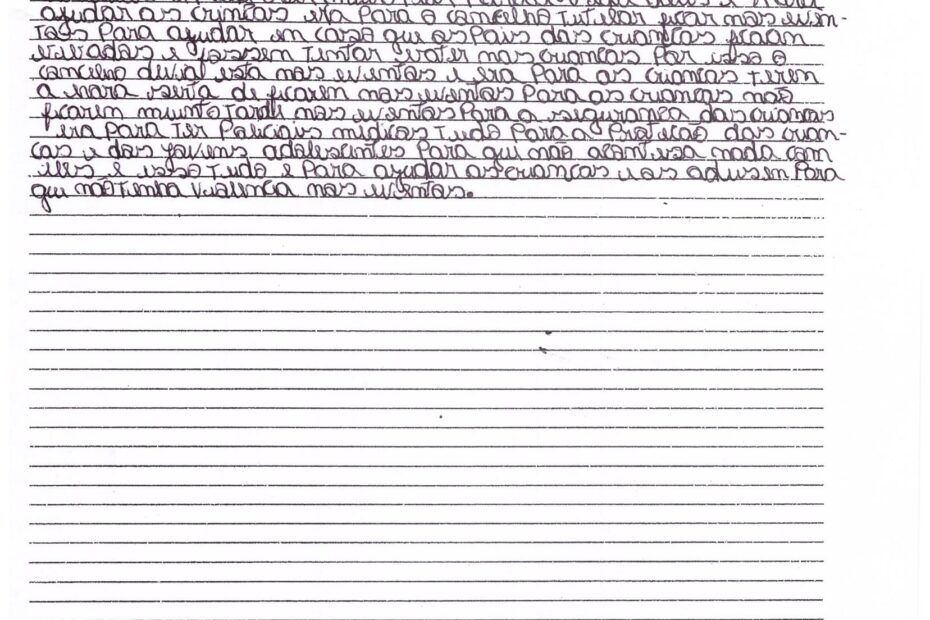 ajudar as crincas era Para o concelho Tutelar ficar nos even-
Tos Para ajudar em caso que os Pais das criancas ficam
e fossem Tentar bater nas criancas Por isso o
concelho divial esta nos eventos e era Para as criancas Terem
a hora serta de ficarem nos eventos Para as criancas não
ficarem muinto Tarde nos eventos Para a seguranca das criancas
era Para Ter Policiais midicos Tudo Para a Proteicão das crian-
cas e das jovens adolescentes Para qui não acontesa nada com
eles e isso Tudo e Para ajudar as criancas e os Para
qui não Tinha vialencia nos eventos.